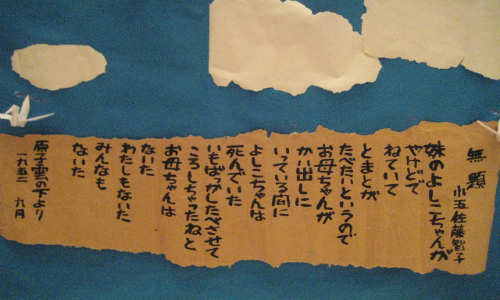 無題
小五 佐藤智子
妹のよしこちゃんが
やけどで
ねていて
とまとが
たべたいというので
お母ちゃんが
かい出しに
いっている間に
よしこちゃんは
死んでいた
いもばかしたべさせて
ころしちゃったねと
お母ちゃんは
ないた
わたしもないた
みんなも
ないた
原子雲の下より
一九五二 九月